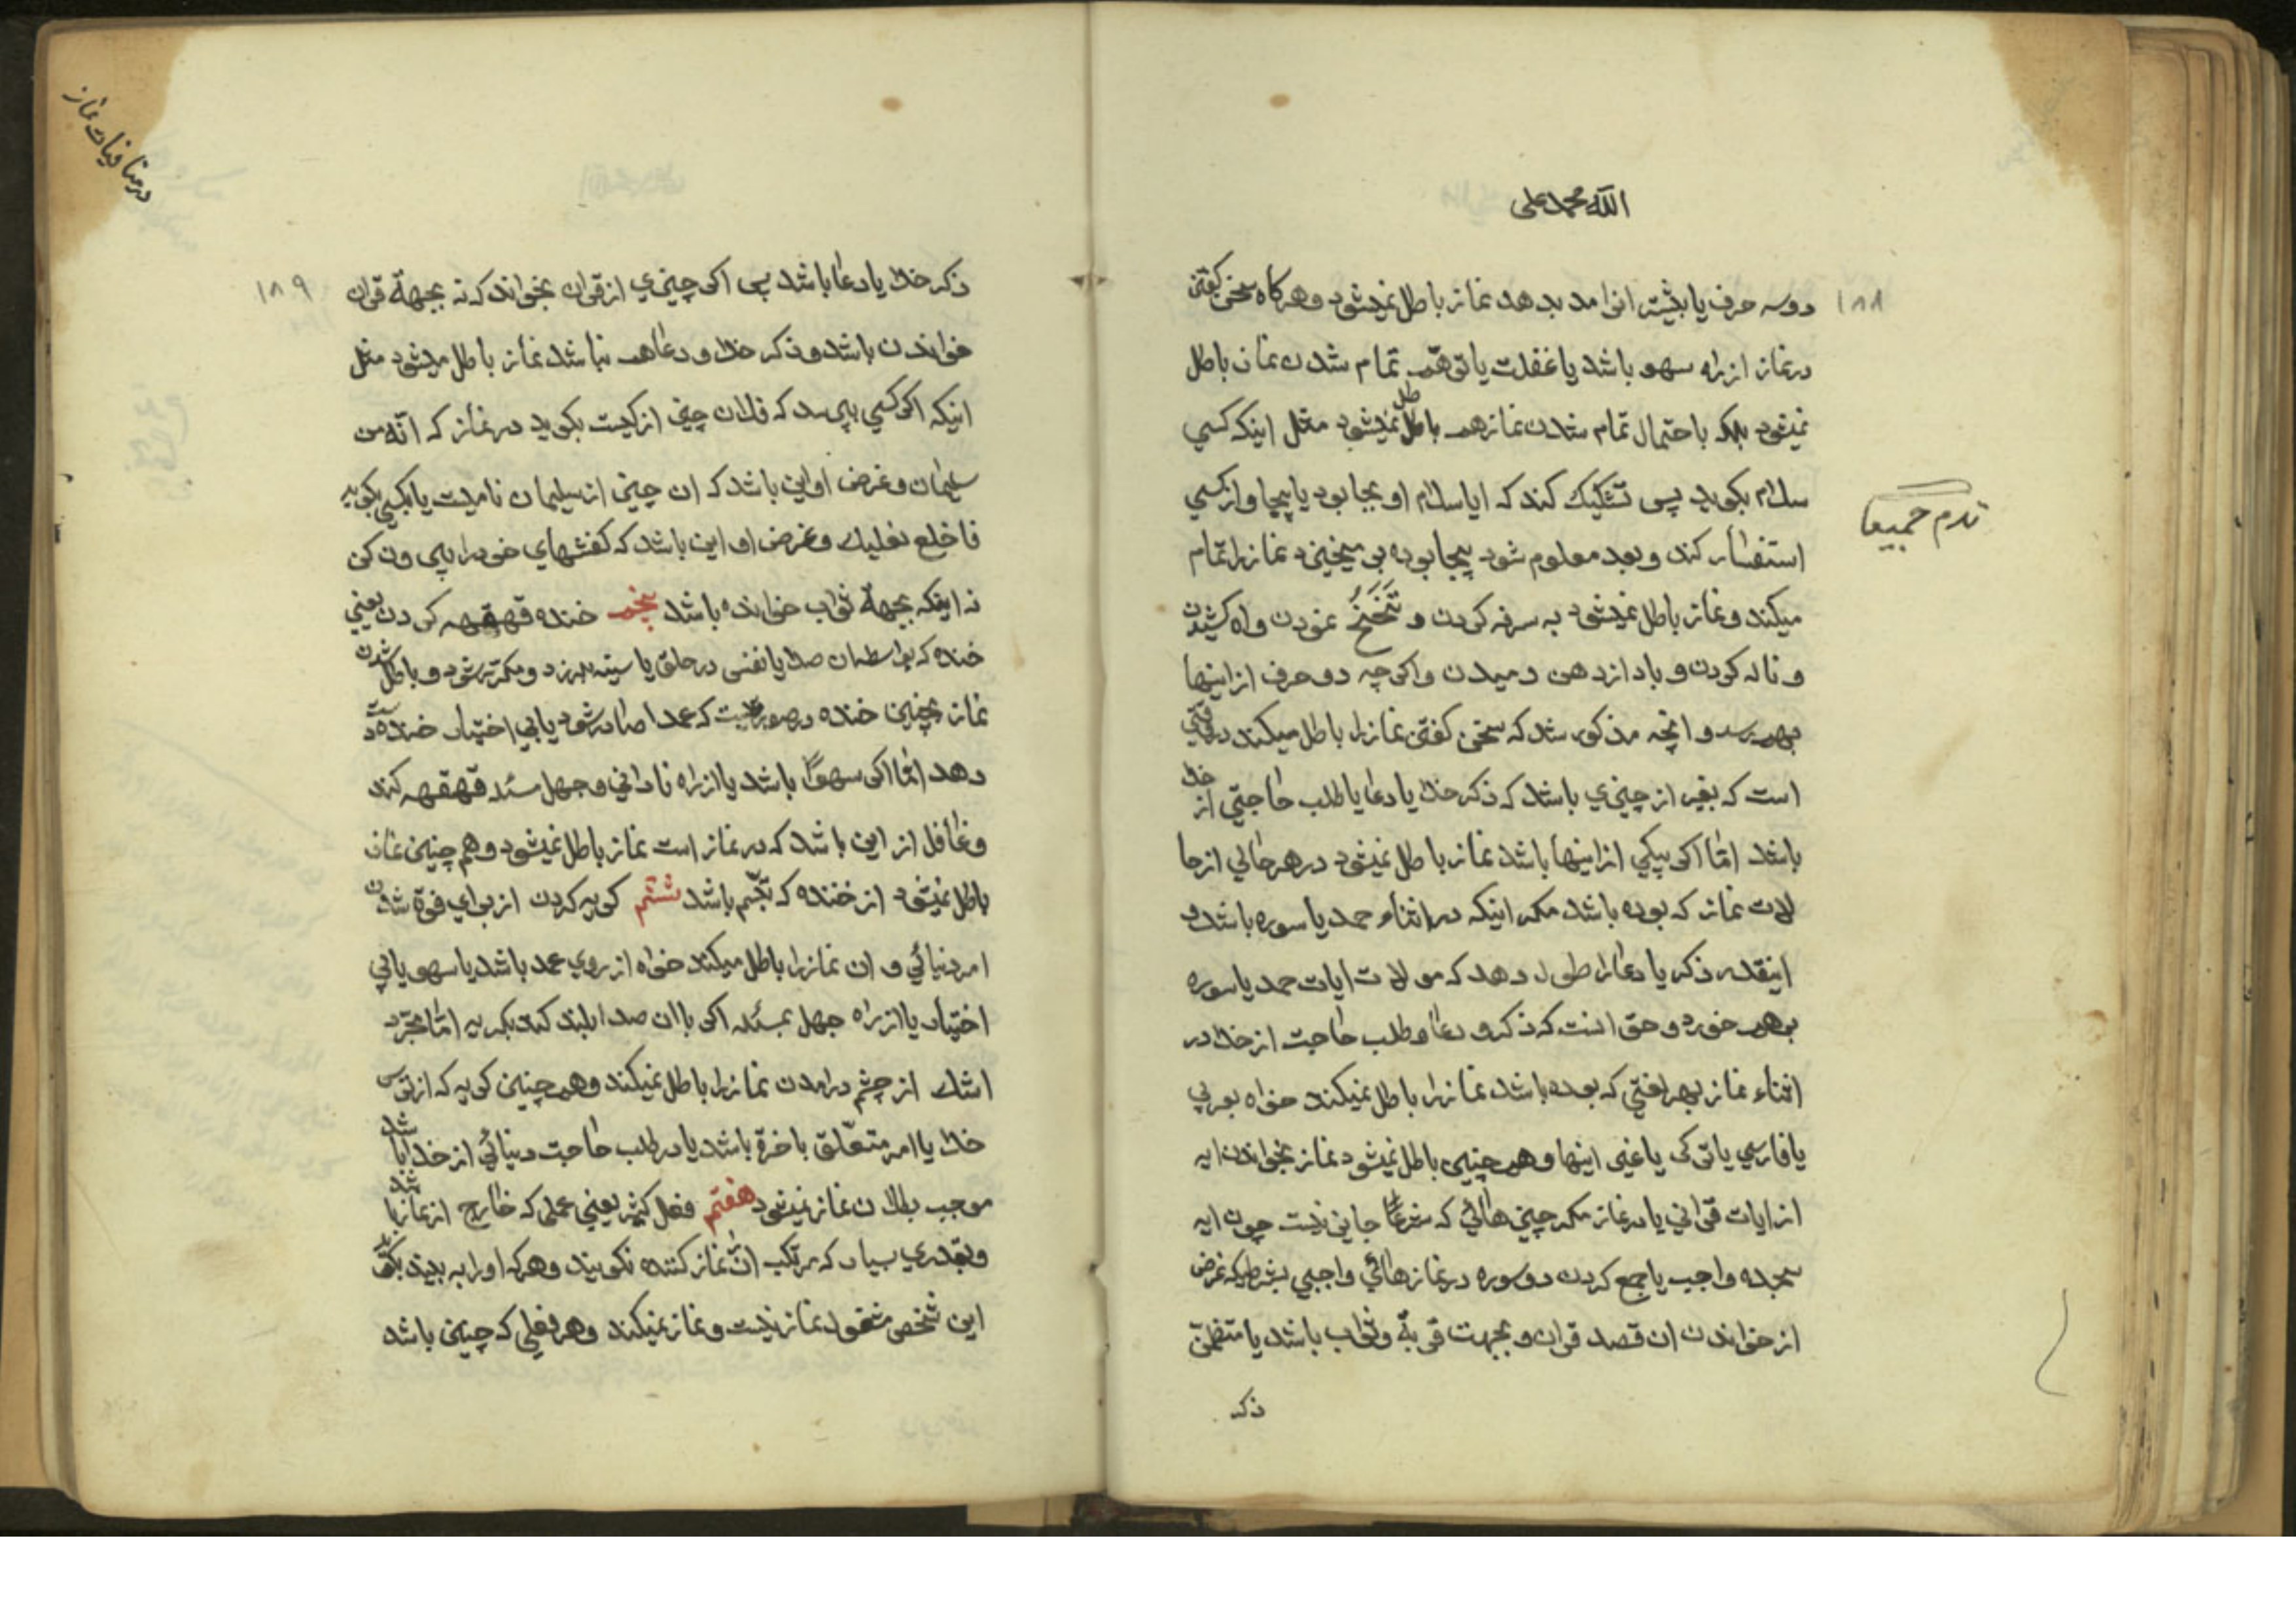 الله محمد علی
۱۸۸
دو سه حرف یا بیشتر انرا مد بدهد نماز باطل نمیشود و هرکاه سخن کفتن
در نماز از راه سهو باشد یا غفلت یا توهم تمام شدن نماز باطل
نمیشود بلکه باحتمال تمام شدن نماز هم باطل نمیشود مثل اینکه کسی
سلام بکوید پس تشکیک کند که ایا سلام او بجا بود یا بیجا و از کسی
استفسار کند و بعد معلوم شود بیجا بوده بر میخیزد نماز را تمام
میکند و نماز باطل نمیشود به سرفه کردن و تنحنح نمودن و اه کشیدن
و ناله کردن و باد از دهن دمیدن و اکرچه دو حرف از اینها
بهم رسد و انچه مذکور شد که سخن کفتن نماز را باطل میکند در وقتی
است که بغیر از چیزی باشد که ذکر خدا یا دعا یا طلب حاجتی از خدا
باشد اما اکر بیکی از اینها باشد نماز باطل نمیشود در هر حالی از حا
لات نماز که بوده باشد مکر اینکه در اثناء حمد یا سوره باشد و
اینقدر ذکر یا دعا را طول دهد که موالات ایات حمد یا سوره
برهم خورد و حق انست که ذکر و دعا و طلب حاجت از خدا در
اثناء نماز بهر لغتی که بوده باشد نماز را باطل نمیکند خواه بعربی
یا فارسی یا ترکی یا غیر اینها و هم چنین باطل نمیشود نماز بخواندن ایه
از ایات قرانی یا در نماز مکر چیزهائی که شرعا جایز نیست چون ایه
سجده واجب یا جمع کردن دو سوره در نمازهائی واجبی بشرطیکه غرض
از خواندن ان قصد قران و بجهت قربة و ثواب باشد یا متضمن
ذکر
در منافیات نماز
۱۸۹
ذکر خدا یا دعا باشد پس اکر چیزی از قران بخواند که نه بجهة قران
خواندن باشد و ذکر خدا و دعا هم نباشد نماز باطل میشود مثل
اینکه اکر کسی بپرسد که فلان چیز از کیست بکوید در نماز که انه من
سلیمان و غرض او این باشد که ان چیز از سلیمان نامیست یا بکسی بکوید
فاخلع نعلیک و غرض او این باشد که کفشهای خود را بیرون کن
نه اینکه بجهة ثواب خوانده باشد پنجم خنده قهقهه کردن یعنی
خنده که بواسطه ان صدا یا نفس در حلق یا سینه بلرزد و مکرر شود و باطل شدن
نماز بچنین خنده در صورتیست که عمدا صادر شود یا بی اختیار خنده دست
دهد اما اکر سهوا باشد یا از راه نادانی و جهل مسئله قهقهه کند
و غافل از این باشد که در نماز است نماز باطل نمیشود و هم چنین نماز
باطل نمیشود از خنده که تبسم باشد ششم کریه کردن از برای فوة شدن
امر دنیائی و ان نماز را باطل میکند خواه از روی عمد باشد یا سهو یا بی
اختیار یا از راه جهل بمسئله اکر با ان صدا بلند کند بکریه اما مجرد
اشک از چشم درامدن نماز را باطل نمیکند و هم چنین کریه که از ترس
خدا یا امر متعلق باخرة باشد یا در طلب حاجت دنیائی از خدا باشد
موجب بطلان نماز نمیشود هفتم فعل کثیر یعنی عملی که خارج از نماز باشد
و بقدری بسیار که مرتکب انرا نماز کننده نکویند و هر که او را به بیند بکوید
این شخص مشغول نماز نیست و نماز نمیکند و هر فعلی که چنین باشد